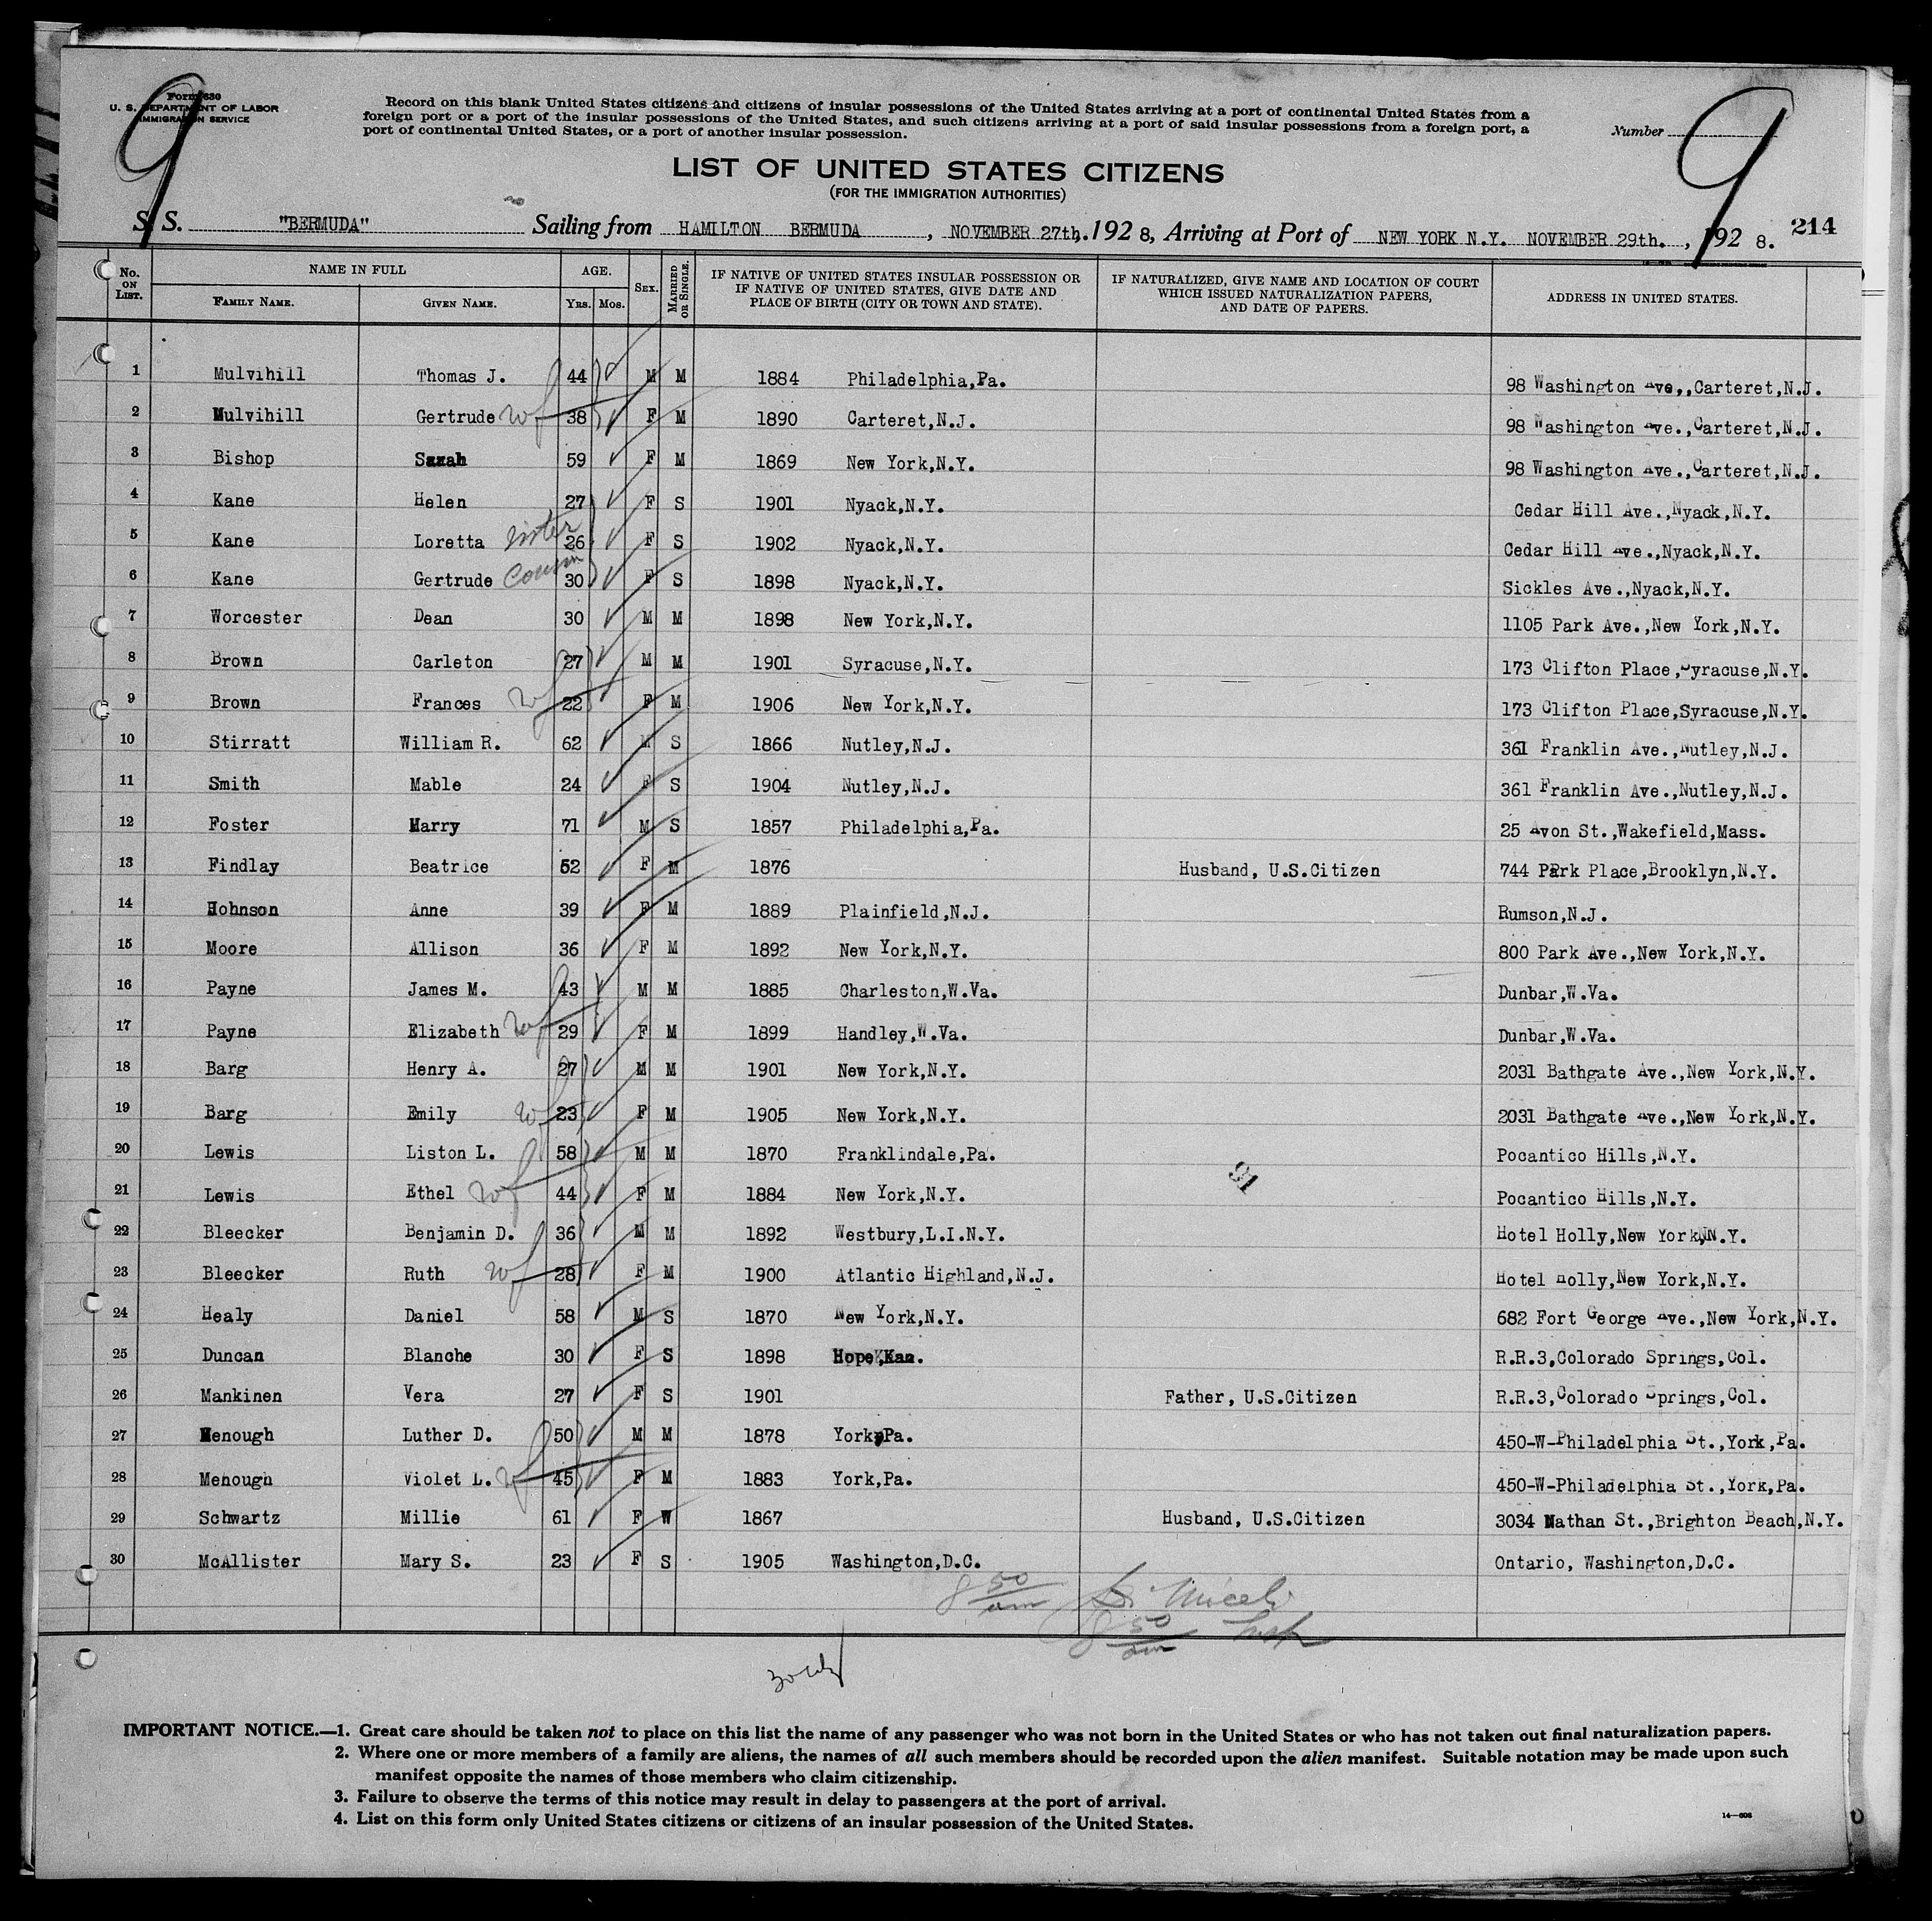 Form 630
U. S. DEPARTMENT OF LABOR
IMMIGRATION SERVICE
9
Record on this blank United States citizens and citizens of insular possessions of the United States arriving at a port of continental United States from a
foreign port or a port of the insular possessions of the United States, and such citizens arriving at a port of said insular possessions from a foreign port, a
port of continental United States, or a port of another insular possession.
Number
9
LIST OF UNITED STATES CITIZENS
(FOR THE IMMIGRATION AUTHORITIES)
S. S. "BERMUDA" Sailing from HAMILTON BERMUDA, NOVEMBER 27th, 1928, Arriving at Port of NEW YORK N.Y. NOVEMBER 29th., 1928. 214
No. ON LIST. NAME IN FULL FAMILY NAME. GIVEN NAME. AGE. YRS. MOS. SEX. MARRIED OR SINGLE. IF NATIVE OF UNITED STATES INSULAR POSSESSION OR IF NATIVE OF UNITED STATES, GIVE DATE AND PLACE OF BIRTH (CITY OR TOWN AND STATE). IF NATURALIZED, GIVE NAME AND LOCATION OF COURT WHICH ISSUED NATURALIZATION PAPERS, AND DATE OF PAPERS. ADDRESS IN UNITED STATES.
1 Mulvihill Thomas J. 44 M M 1884 Philadelphia,Pa. 98 Washington Ave,,Carteret,N.J.
2 Mulvihill Gertrude wf 38 F M 1890 Carteret,N.J. 98 Washington Ave.,Carteret,N.J.
3 Bishop Sarah 59 F M 1869 New York,N.Y. 98 Washington Ave.,Carteret,N.J.
4 Kane Helen 27 F S 1901 Nyack,N.Y. Cedar Hill Ave.,Nyack,N.Y.
5 Kane Loretta sister 26 F S 1902 Nyack,N.Y. Cedar Hill Ave.,Nyack,N.Y.
6 Kane Gertrude Cousin 30 F S 1898 Nyack,N.Y. Sickles Ave.,Nyack,N.Y.
7 Worcester Dean 30 M M 1898 New York,N.Y. 1105 Park Ave.,New York,N.Y.
8 Brown Carleton 27 M M 1901 Syracuse,N.Y. 173 Clifton Place,Syracuse,N.Y.
9 Brown Frances wf 22 F M 1906 New York,N.Y. 173 Clifton Place,Syracuse,N.Y.
10 Stirratt William R. 62 M S 1866 Nutley,N.J. 361 Franklin Ave.,Nutley,N.J.
11 Smith Mable 24 F S 1904 Nutley,N.J. 361 Franklin Ave.,Nutley,N.J.
12 Foster Harry 71 M S 1857 Philadelphia,Pa. 25 Avon St.,Wakefield,Mass.
13 Findlay Beatrice 52 F M 1876 Husband, U.S.Citizen 744 Park Place,Brooklyn,N.Y.
14 Hohnson Anne 39 F M 1889 Plainfield,N.J. Rumson,N.J.
15 Moore Allison 36 F M 1892 New York,N.Y. 800 Park Ave.,New York,N.Y.
16 Payne James M. 43 M M 1885 Charleston,W.Va. Dunbar,W.Va.
17 Payne Elizabeth wf 29 F M 1899 Handley,W.Va. Dunbar,W.Va.
18 Barg Henry A. 27 M M 1901 New York,N.Y. 2031 Bathgate Ave.,New York,N.Y.
19 Barg Emily wf 23 F M 1905 New York,N.Y. 2031 Bathgate Ave.,New York,N.Y.
20 Lewis Liston L. 58 M M 1870 Franklindale,Pa. Pocantico Hills,N.Y.
91
21 Lewis Ethel wf 44 F M 1884 New York,N.Y. Pocantico Hills,N.Y.
22 Bleecker Benjamin D. 36 M M 1892 Westbury,L.I.N.Y. Hotel Holly,New York,N.Y.
23 Bleecker Ruth wf 28 F M 1900 Atlantic Highland,N.J. Hotel Holly,New York,N.Y.
24 Healy Daniel 58 M S 1870 New York,N.Y. 682 Fort George Ave.,New York,N.Y.
25 Duncan Blanche 30 F S 1898 Hope,Kan. R.R.3,Colorado Springs,Col.
26 Mankinen Vera 27 F S 1901 Father, U.S.Citizen R.R.3,Colorado Springs,Col.
27 Menough Luther D. 50 M M 1878 York,Pa. 450-W-Philadelphia St.,York,Pa.
28 Menough Violet L. wf 45 F M 1883 York,Pa. 450-W-Philadelphia St.,York,Pa.
29 Schwartz Millie 61 F W 1867 Husband, U.S.Citizen 3034 Nathan St.,Brighton Beach,N.Y.
30 McAllister Mary S. 23 F S 1905 Washington,D.C. Ontario, Washington,D.C.
8 50 am
8 50 am Insp
IMPORTANT NOTICE.—1. Great care should be taken not to place on this list the name of any passenger who was not born in the United States or who has not taken out final naturalization papers.
2. Where one or more members of a family are aliens, the names of all such members should be recorded upon the alien manifest. Suitable notation may be made upon such
manifest opposite the names of those members who claim citizenship.
3. Failure to observe the terms of this notice may result in delay to passengers at the port of arrival.
4. List on this form only United States citizens or citizens of an insular possession of the United States.
14—606